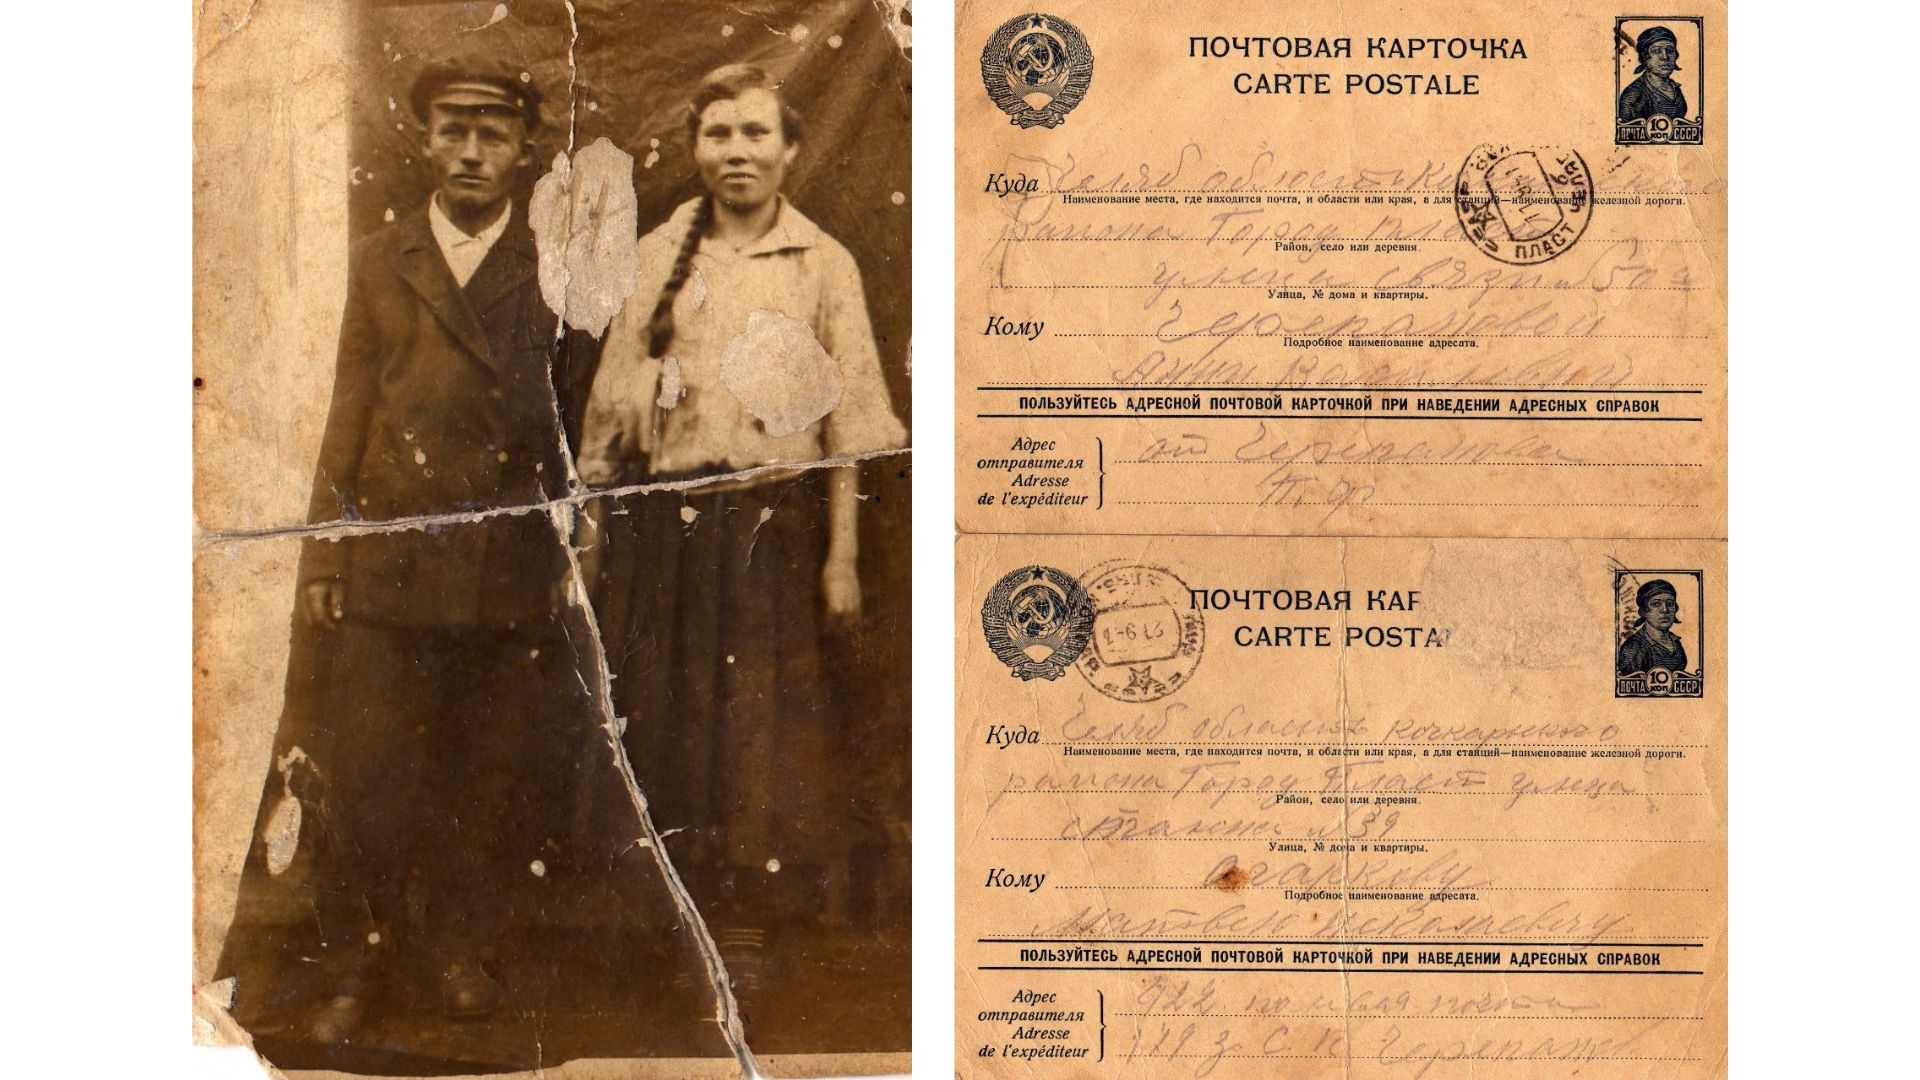 ПОЧТОВАЯ КАРТОЧКА
CARTE POSTALE
ПОЧТА 10 КОП СССР
Куда Челяб область
Наименование места, где находится почта, и области или края, а для станций—наименование железной дороги.
района Город Пласт
Район, село или деревня.
улица связи №50
Улица, № дома и квартиры.
ПЛАСТ
Кому Черепановой
Подробное наименование адресата.
Анны
ПОЛЬЗУЙТЕСЬ АДРЕСНОЙ ПОЧТОВОЙ КАРТОЧКОЙ ПРИ НАВЕДЕНИИ АДРЕСНЫХ СПРАВОК
Адрес отправителя
Adresse de l'expéditeur
от Черепанова
П. Ф.
ПОЧТОВАЯ КАР
CARTE POSTA
ПОЧТА 10 КОП СССР
Куда Челяб область Кочкарского
Наименование места, где находится почта, и области или края, а для станций—наименование железной дороги.
района Город Пласт улица
Район, село или деревня.
№39
Улица, № дома и квартиры.
Кому Огаркову
Подробное наименование адресата.
Матвею
ПОЛЬЗУЙТЕСЬ АДРЕСНОЙ ПОЧТОВОЙ КАРТОЧКОЙ ПРИ НАВЕДЕНИИ АДРЕСНЫХ СПРАВОК
Адрес отправителя
Adresse de l'expéditeur
922 полевая почта
179 з. С. П.